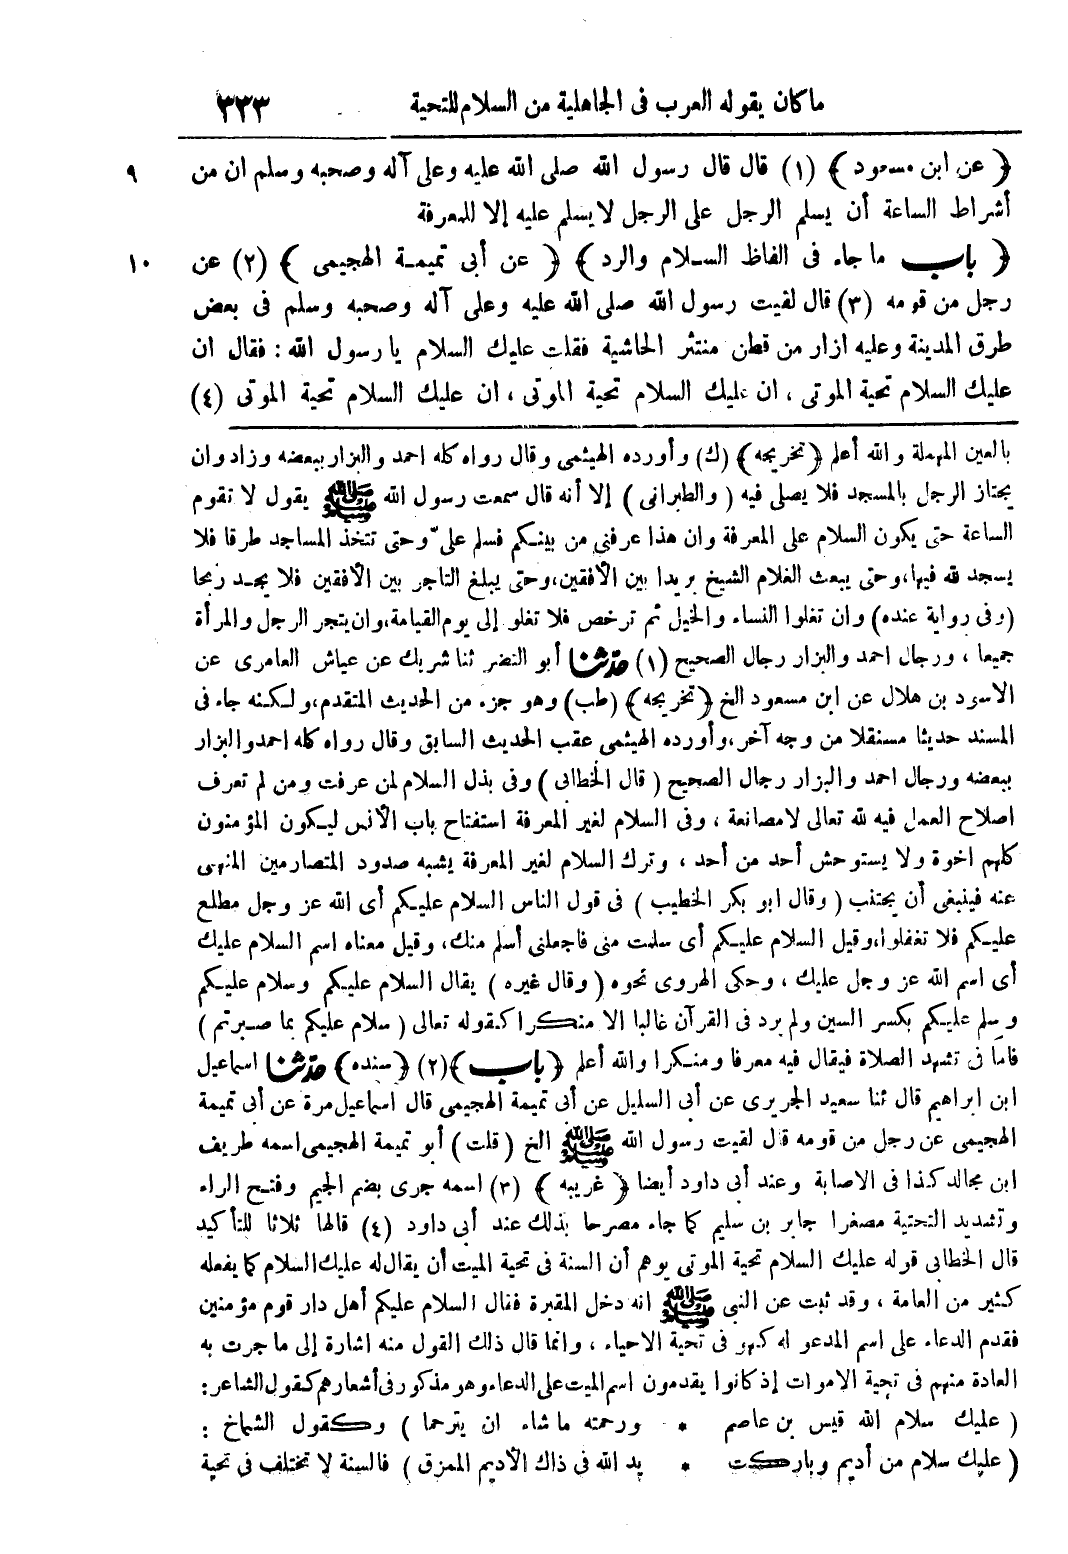 ما كان يقوله العرب فى الجاهلية من السلام للتحية ٣٣٣
﴿ عن ابن مسعود ﴾ (١) قال قال رسول الله صلى الله عليه وعلى آله وصحبه وسلم ان من ٩
أشراط الساعة أن يسلم الرجل على الرجل لا يسلم عليه إلا للمعرفة
﴿ باب ما جاء فى الفاظ السلام والرد ﴾ ﴿ عن أبى تميمة الهجيمى ﴾ (٢) عن ١٠
رجل من قومه (٣) قال لقيت رسول الله صلى الله عليه وعلى آله وصحبه وسلم فى بعض
طرق المدينة وعليه ازار من قطن منتثر الحاشية فقلت عليك السلام يا رسول الله : فقال ان
عليك السلام تحية الموتى ، ان عليك السلام تحية الموتى ، ان عليك السلام تحية الموتى (٤)
بالعين المهملة والله أعلم ﴿ تخريجه ﴾ (ك) وأورده الهيثمى وقال رواه كله احمد والبزار ببعضه وزاد وان
يجتاز الرجل بالمسجد فلا يصلى فيه ( والطبرانى ) إلا أنه قال سمعت رسول الله ﷺ يقول لا تقوم
الساعة حتى يكون السلام على المعرفة وان هذا عرفنى من بينكم فسلم علىّ وحتى تتخذ المساجد طرقا فلا
يسجد لله فيها،وحتى يبعث الغلام الشيخ بريدا بين الأفقين،وحتى يبلغ التاجر بين الأفقين فلا يجد ربحا
(وفى رواية عنده) وان تغلوا النساء والخيل ثم ترخص فلا تغلو إلى يوم القيامة،وان يتجر الرجل والمرأة
جميعا ، ورجال احمد والبزار رجال الصحيح (١) حدّثنا أبو النضر ثنا شريك عن عياش العامرى عن
الاسود بن هلال عن ابن مسعود الخ ﴿ تخريجه ﴾ (طب) وهو جزء من الحديث المتقدم،ولكنه جاء فى
المسند حديثا مستقلا من وجه آخر،وأورده الهيثمى عقب الحديث السابق وقال رواه كله احمد والبزار
ببعضه ورجال احمد والبزار رجال الصحيح ( قال الخطابى ) وفى بذل السلام لمن عرفت ومن لم تعرف
اصلاح العمل فيه لله تعالى لا مصانعة ، وفى السلام لغير المعرفة استفتاح باب الأنس ليكون المؤمنون
كلهم اخوة ولا يستوحش أحد من أحد ، وترك السلام لغير المعرفة يشبه صدود المتصارمين المنهى
عنه فينبغى أن يجتنب ( وقال ابو بكر الخطيب ) فى قول الناس السلام عليكم أى الله عز وجل مطلع
عليكم فلا تغفلوا،وقيل السلام عليكم أى سلمت منى فاجعلنى أسلم منك، وقيل معناه اسم السلام عليك
أى اسم الله عز وجل عليك ، وحكى الهروى نحوه ( وقال غيره ) يقال السلام عليكم وسلام عليكم
وسلم عليكم بكسر السين ولم يرد فى القرآن غالبا الا منكرا كقوله تعالى ( سلام عليكم بما صبرتم )
فاما فى تشهد الصلاة فيقال فيه معرفا ومنكرا والله أعلم ﴿ باب ﴾ (٢) ﴿سنده﴾ حدّثنا اسماعيل
ابن ابراهيم قال ثنا سعيد الجريرى عن أبى السليل عن أبى تميمة الهجيمى قال اسماعيل مرة عن أبى تميمة
الهجيمى عن رجل من قومه قال لقيت رسول الله ﷺ الخ ( قلت ) أبو تميمة الهجيمى اسمه طريف
ابن مجالد كذا فى الاصابة وعند أبى داود أيضا ﴿ غريبه ﴾ (٣) اسمه جرى بضم الجيم وفتح الراء
وتشديد التحتية مصغرا جابر بن سليم كما جاء مصرحا بذلك عند أبى داود (٤) قالها ثلاثا للتأكيد
قال الخطابى قوله عليك السلام تحية الموتى يوهم أن السنة فى تحية الميت أن يقال له عليك السلام كما يفعله
كثير من العامة ، وقد ثبت عن النبى ﷺ انه دخل المقبرة فقال السلام عليكم أهل دار قوم مؤمنين
فقدم الدعاء على اسم المدعو له كهو فى تحية الاحياء ، وانما قال ذلك القول منه اشارة إلى ما جرت به
العادة منهم فى تحية الاموات إذ كانوا يقدمون اسم الميت على الدعاء وهو مذكور فى أشعارهم كقول الشاعر:
( عليك سلام الله قيس بن عاصم * ورحمته ما شاء ان يترحما ) وكقول الشماخ :
( عليك سلام من أديم وباركت * يد الله فى ذاك الأديم الممزق ) فالسنة لا تختلف فى تحية